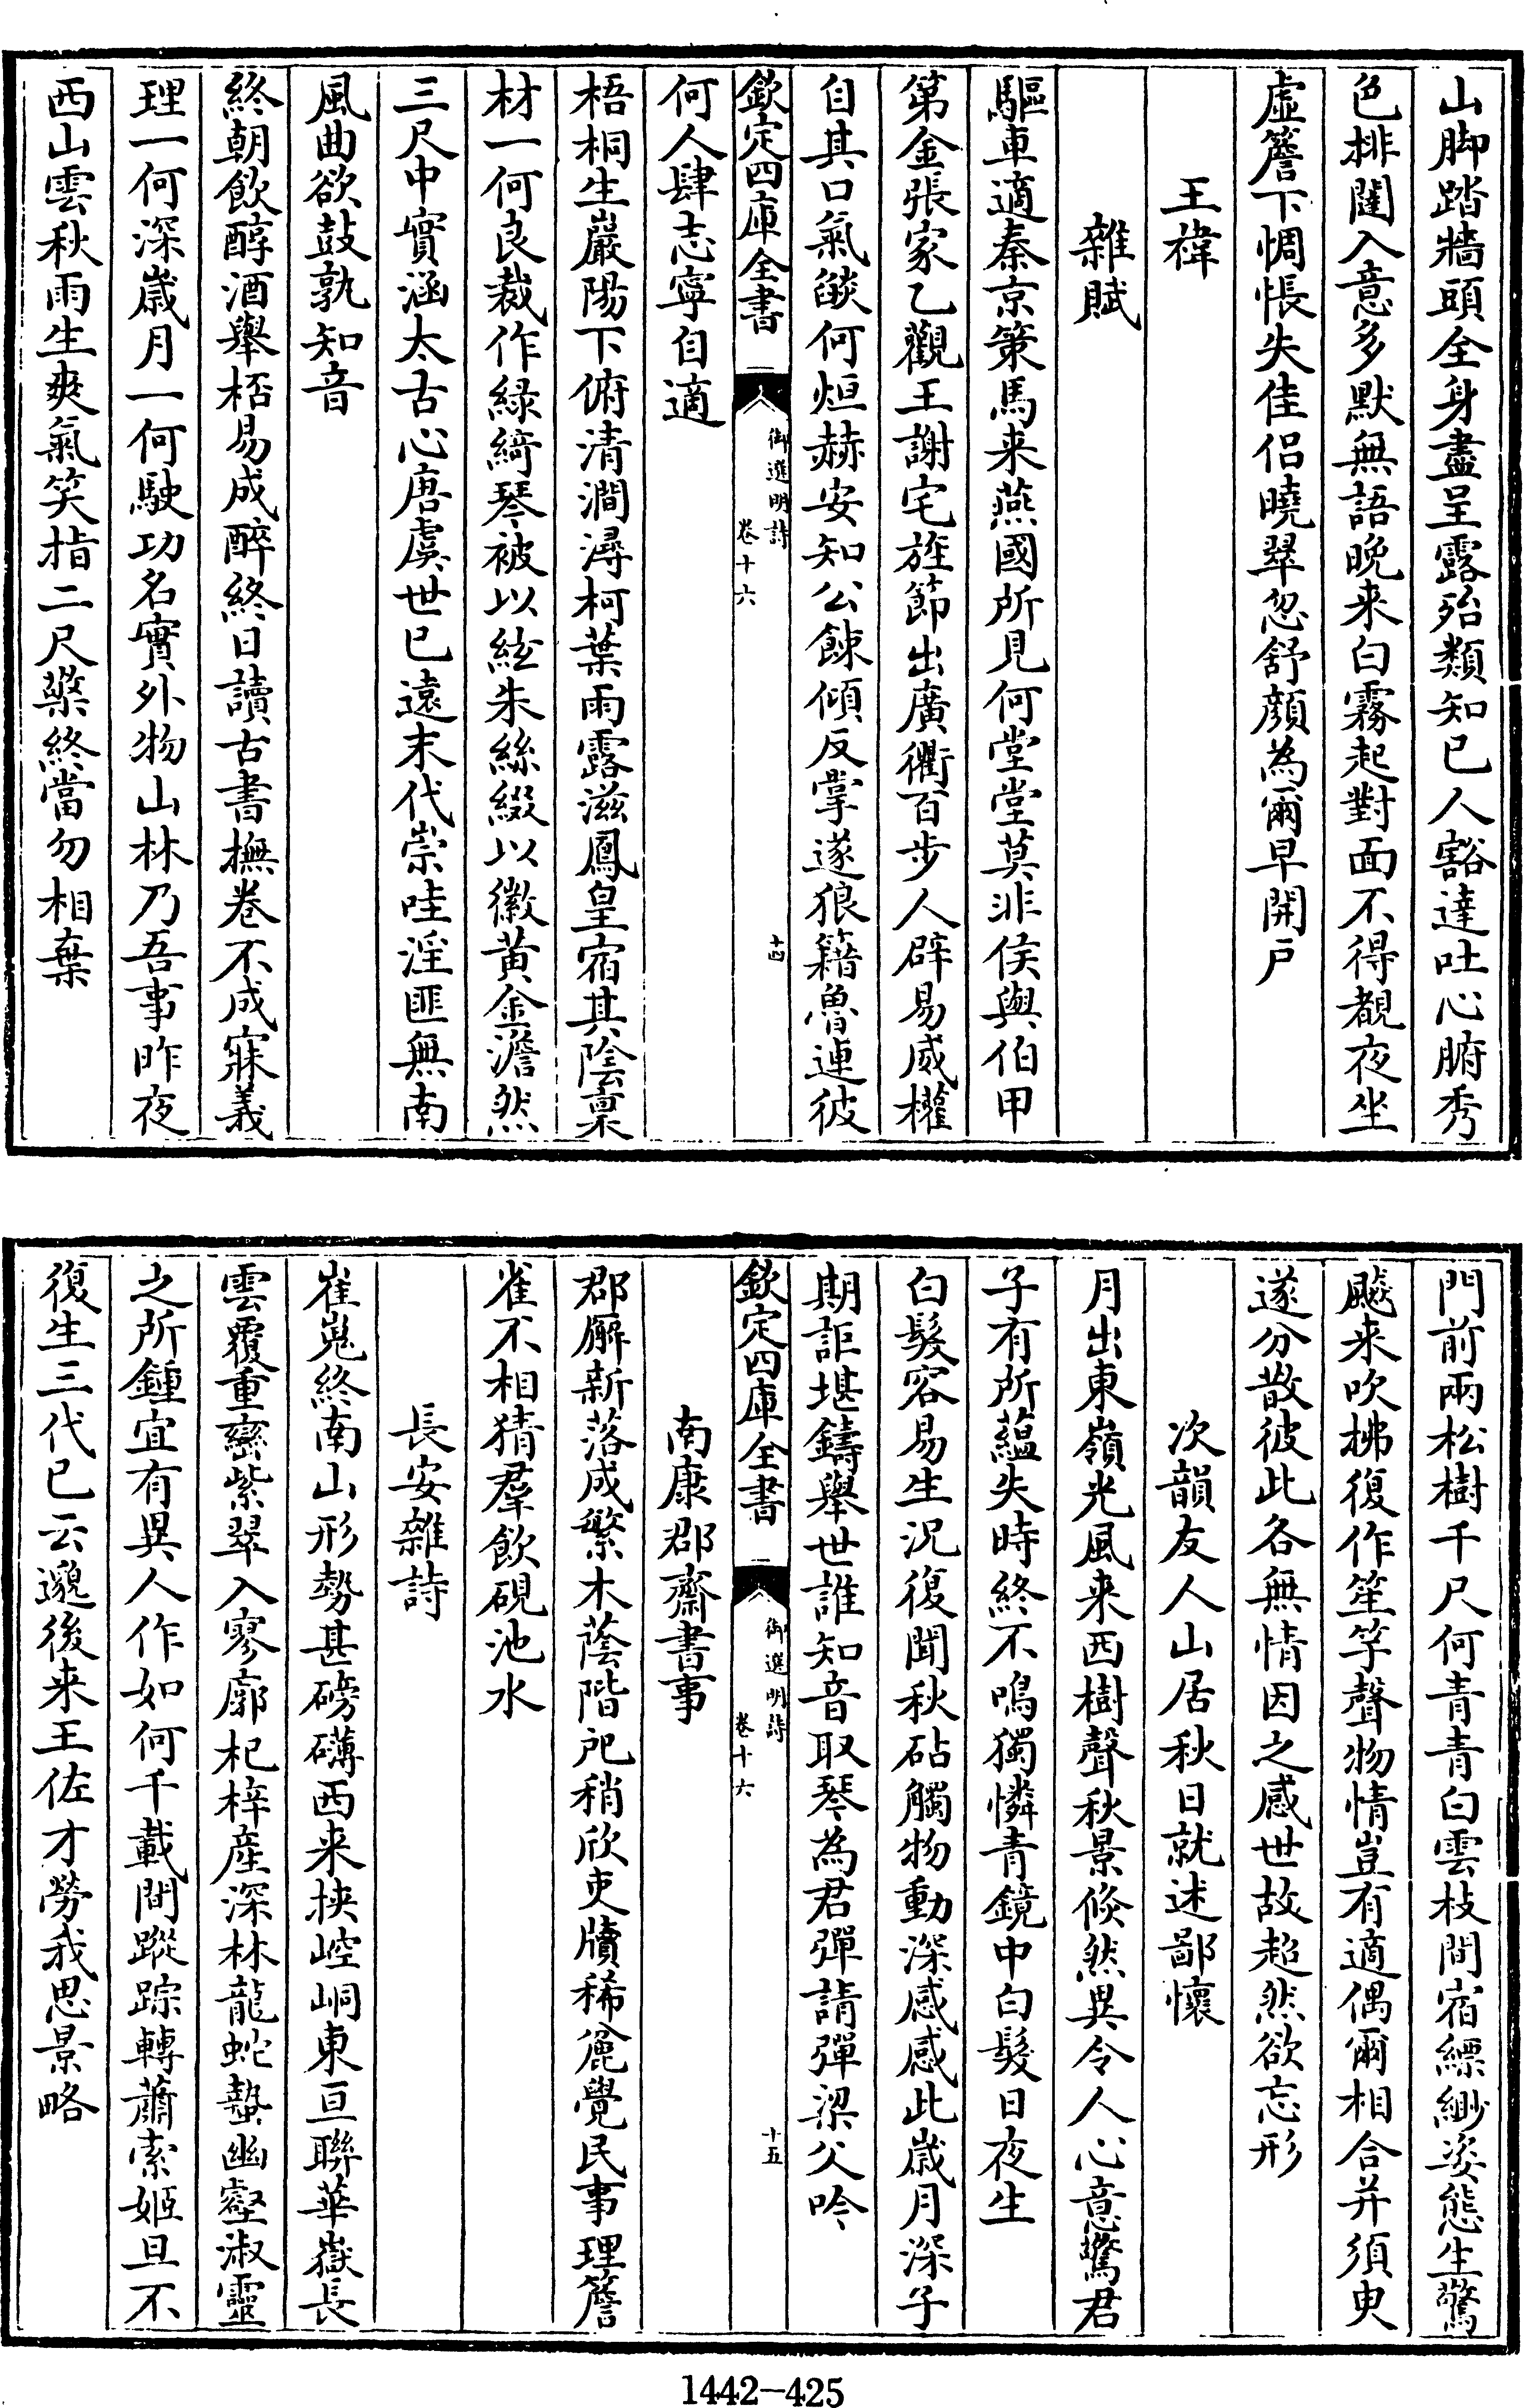 山脚踏牆頭全身盡呈露殆類知已人豁達吐心腑秀
色排闥入意多默無語晚来白霧起對面不得覩夜坐
虚簷下惆悵失佳侣曉翠忽舒顔為爾早開戸
王禕
雜賦
驅車適秦京策馬来燕國所見何堂堂莫非侯與伯甲
第金張家乙觀王謝宅旌節出廣衢百步人辟易威權
自其口氣燄何烜赫安知公餗傾反掌遂狼籍魯連彼
欽定四庫全書
御選明詩
卷十六
十四
何人肆志寧自適
梧桐生巖陽下俯清澗潯柯葉雨露滋鳳皇宿其陰稟
材一何良裁作緑綺琴被以絃朱絲綴以徽黄金澹然
三尺中實涵太古心唐虞世已遠末代崇哇淫匪無南
風曲欲鼓孰知音
終朝飲醇酒舉桮易成醉終日讀古書撫卷不成寐義
理一何深歲月一何駛功名實外物山林乃吾事昨夜
西山雲秋雨生爽氣笑指二尺檠終當勿相棄
門前兩松樹千尺何青青白雲枝間宿縹緲姿態生驚
飈来吹拂復作笙竽聲物情豈有適偶爾相合并須臾
遂分散彼此各無情因之感世故超然欲忘形
次韻友人山居秋日就述鄙懷
月出東嶺光風来西樹聲秋景倏然異令人心意驚君
子有所藴失時終不鳴獨憐青鏡中白髮日夜生
白髮容易生況復聞秋砧觸物動深感感此歲月深子
期詎堪鑄舉世誰知音取琴為君彈請彈梁父吟
欽定四庫全書
御選明詩
卷十六
十五
南康郡齋書事
郡廨新落成繁木蔭階戺稍欣吏牘稀僉覺民事理簷
雀不相猜羣飲硯池水
長安雜詩
崔嵬終南山形勢甚磅礴西来挟崆峒東亘聯華嶽長
雲覆重巒紫翠入寥廓杞梓産深林龍蛇蟄幽壑淑靈
之所鍾宜有異人作如何千載間蹤踪轉蕭索姬旦不
復生三代已云邈後来王佐才勞我思景略
1442—425